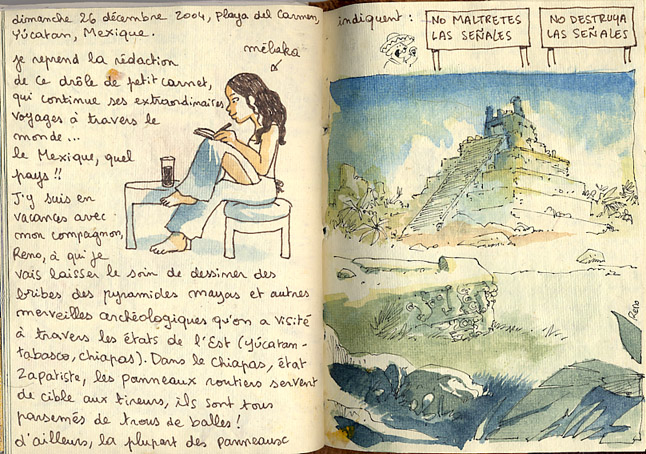 dimanche 26 décembre 2004, playa del Carmen,
Yúcatan, Mexique.
mébeka
je reprend la rédaction
de ce drôle de petit carnet,
qui continue ses extraordinaires
voyages à travers le
monde...
le Mexique, quel
pays !!
J'y suis en
vacances avec
mon compagnon,
Reno, à qui je
vais laisser le soin de dessiner des
bribes des pyramides mayas et autres
merveilles archéologiques qu'on a visité
à travers les états de l'Est (Yúcatan-
tabasco, chiapas). Dans le Chiapas, état
Zapatiste, les panneaux routiers servent
de cible aux tireurs, ils sont tous
parsemés de trous de balles !
d'ailleurs, la plupart des panneaux
indiquent :
NO MALTRETES
LAS SEÑALES
NO DESTRUYA
LAS SEÑALES
Reno